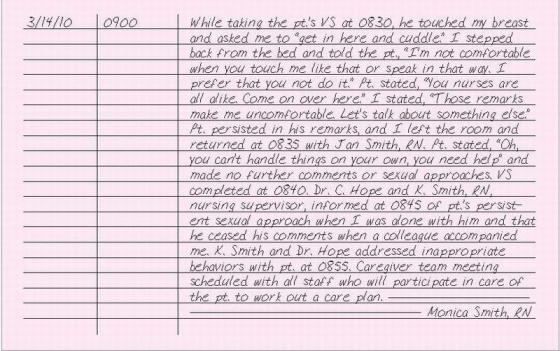 3/14/10 0900 While taking the pt.'s VS at 0830, he touched my breast
and asked me to "get in here and cuddle." I stepped
back from the bed and told the pt., "I'm not comfortable
when you touch me like that or speak in that way. I
prefer that you not do it." Pt. stated, "You nurses are
all alike. Come on over here." I stated, "Those remarks
make me uncomfortable. Let's talk about something else."
Pt. persisted in his remarks, and I left the room and
returned at 0835 with Jan Smith, RN. Pt. stated, "Oh,
you can't handle things on your own, you need help" and
made no further comments or sexual approaches. VS
completed at 0840. Dr. C. Hope and K. Smith, RN,
nursing supervisor, informed at 0845 of pt.'s persist-
ent sexual approach when I was alone with him and that
he ceased his comments when a colleague accompanied
me. K. Smith and Dr. Hope addressed inappropriate
behaviors with pt. at 0855. Caregiver team meeting
scheduled with all staff who will participate in care of
the pt. to work out a care plan.
Monica Smith, RN